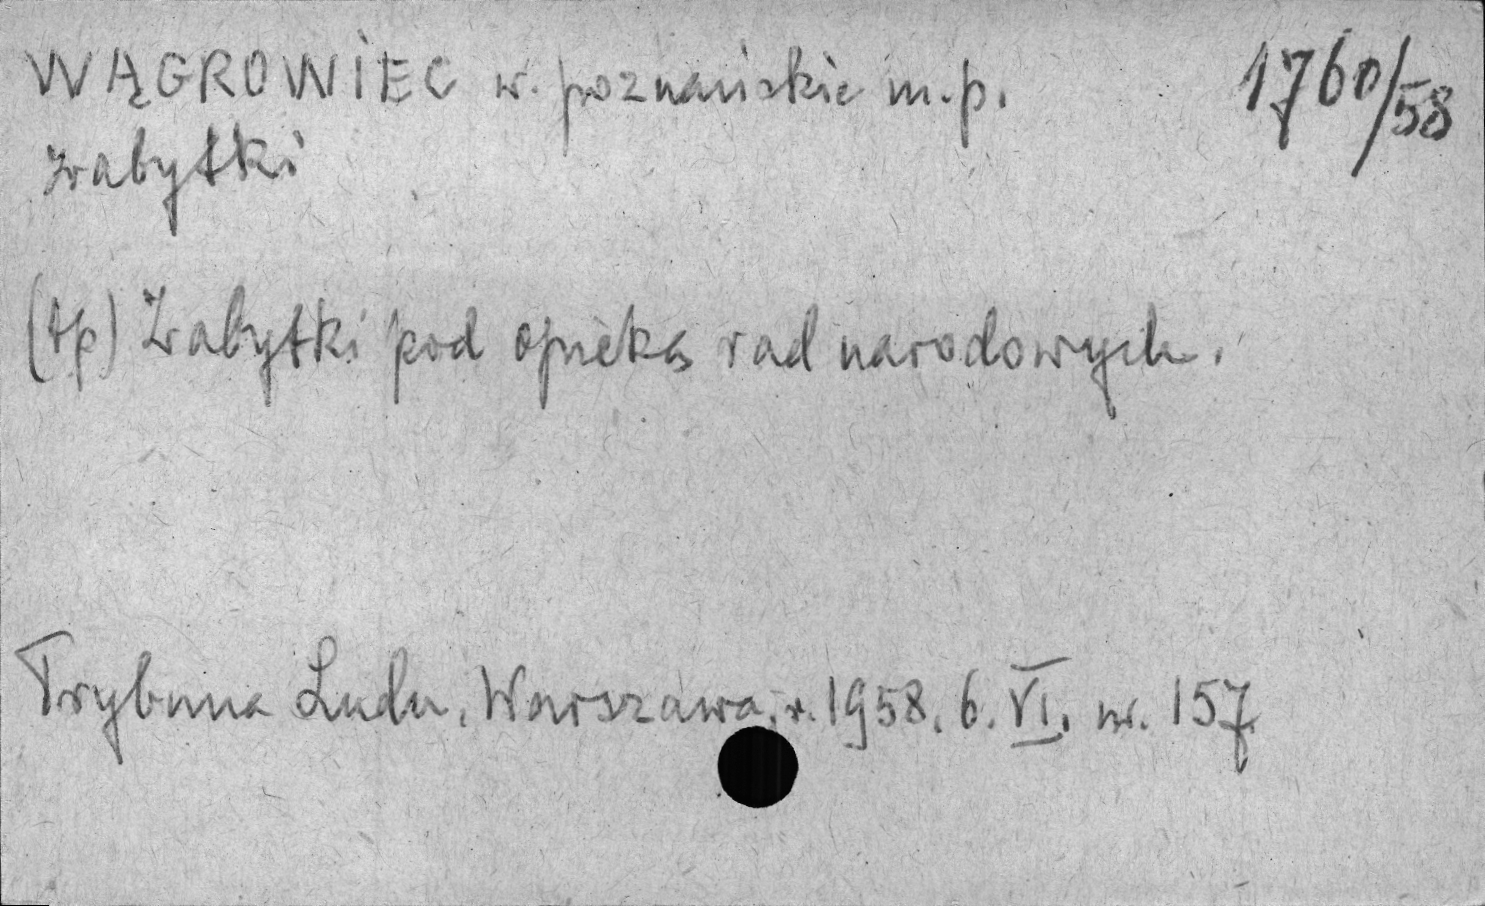 WĄGROWIEC w. poznańskie m.p. 1760/58
zabytki
(tp) Zabytki pod opieką rad narodowych.
Trybuna Ludu, Warszawa, r. 1958. 6. VI. nr. 157